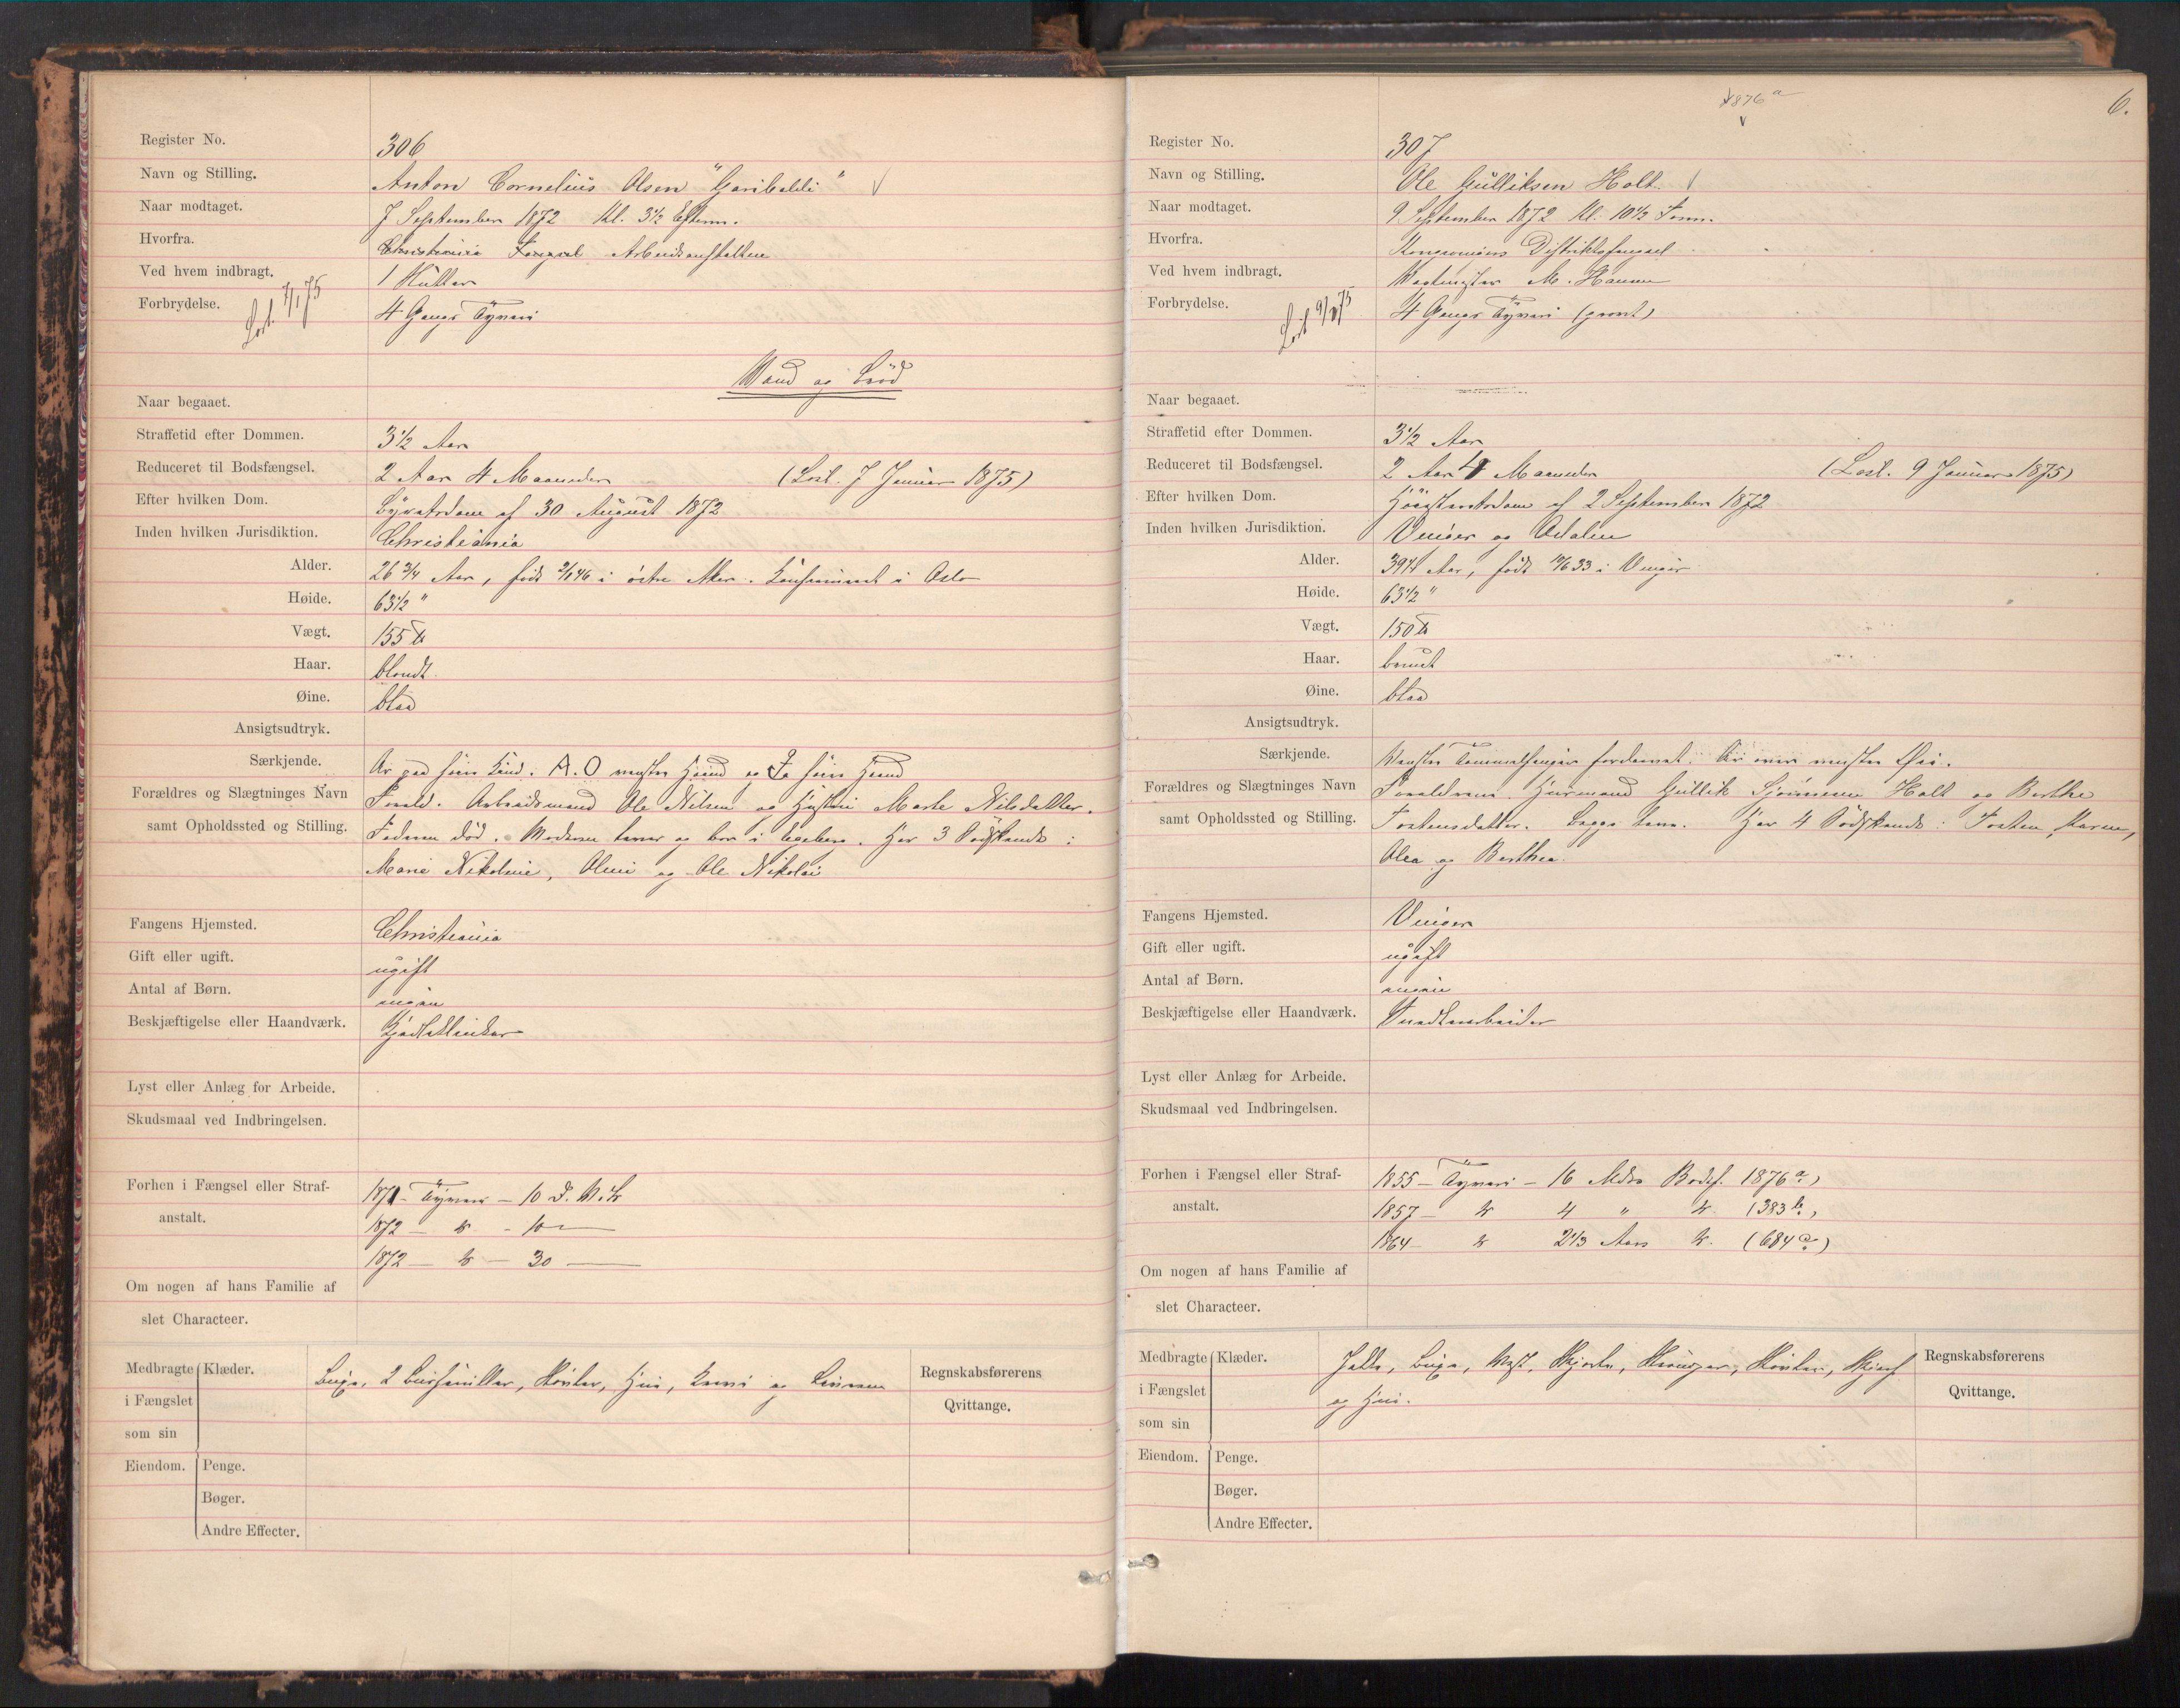 Register No. 306
Navn og Stilling. Anton Cornelius Olsen "Garibaldi" √
Naar modtaget. 7 September 1872 Kl. 3½ Efterm.
Hvorfra. Christiania Arbeidsanstalten
Ved hvem indbragt. 1 Kutter
Forbrydelse. 4 Gangs Tyveri
Løsl. 7/1 75
Vand og Brød
Naar begaaet.
Straffetid efter Dommen. 3½ Aar
Reduceret til Bodsfængsel. 2 Aar 4 Maaneder (Løsl. 7 Januar 1875)
Efter hvilken Dom. Byretsdom af 30 August 1872
Inden hvilken Jurisdiktion. Christiania
Alder. 26 3/4 Aar, født i østre Aker. Konfirmeret i Oslo
Høide. 63½ "
Vægt. 155 ℔
Haar. blondt.
Øine. blaa
Ansigtsudtryk.
Særkjende. Ar paa høire Kind. A. O venstre Haand og høire Haand
Forældres og Slægtninges Navn Foræld. Arbeidsmand Ole Nilsen og Hustru Marte Nilsdatter.
samt Opholdssted og Stilling. Faderen død. Moderen lever og bor i Egeberg. Har 3 Sødskende:
Marie Nikoline, Oline og Ole Nikolai
Fangens Hjemsted. Christiania
Gift eller ugift. ugift
Antal af Børn. ingen
Beskjæftigelse eller Haandværk.
Lyst eller Anlæg for Arbeide.
Skudsmaal ved Indbringelsen.
Forhen i Fængsel eller Straf- 1871 - Tyveri - 10 D. V&B
anstalt. 1872 — - 10 —
1872 — — 30 —
Om nogen af hans Familie af
slet Characteer.
Medbragte Klæder. Buxe, 2 Busseruller, Støvler, Hue, og Livrem
i Fængslet
som sin
Eiendom. Penge.
Bøger.
Andre Effecter.
Regnskabsførerens
Qvittange.
1876 a
6.
Register No. 307
Navn og Stilling. Ole Gulliksen Holt. √
Naar modtaget. 9 September 1872 Kl. 10½ Form.
Hvorfra. Kongsvingers Distriktsfængsel
Ved hvem indbragt. Vagtmester M. Hansen
Forbrydelse. 4 Gangs Tyveri (grovt)
Løsl 9/1 75
Naar begaaet.
Straffetid efter Dommen. 3½ Aar
Reduceret til Bodsfængsel. 2 Aar 4 Maaneder (Løsl. 9 Januar 1875)
Efter hvilken Dom. Høiesteretsdom af 2 September 1872
Inden hvilken Jurisdiktion. Vinger og Odalen
Alder. 39¼ Aar, født 33 i Vinger
Høide. 63½ "
Vægt. 150 ℔
Haar. brunt
Øine. blaa
Ansigtsudtryk.
Særkjende. Venstre Tommelfinger fordærvet. Ar over venstre Øie.
Forældres og Slægtninges Navn Forældrene. Husmand Gullik Holt og Berthe
samt Opholdssted og Stilling. Torstensdatter. begge leve. Har 4 Sødskende: Torsten, Karen,
Olea og Berthea.
Fangens Hjemsted. Vinger
Gift eller ugift. ugift
Antal af Børn. ingen
Beskjæftigelse eller Haandværk.
Lyst eller Anlæg for Arbeide.
Skudsmaal ved Indbringelsen.
Forhen i Fængsel eller Straf- 1855 — Tyveri — 16 Mdrs Bodsf. 1876 a)
anstalt. 1857 — 4 " (383 b.)
1864 — 2 1/3 Aars (684 a)
Om nogen af hans Familie af
slet Characteer.
Medbragte Klæder. Jakke, Buxe, Vest, Skjorte, Strømper, Støvler, Skjerf
i Fængslet og Hue.
som sin
Eiendom. Penge.
Bøger.
Andre Effecter.
Regnskabsførerens
Qvittange.